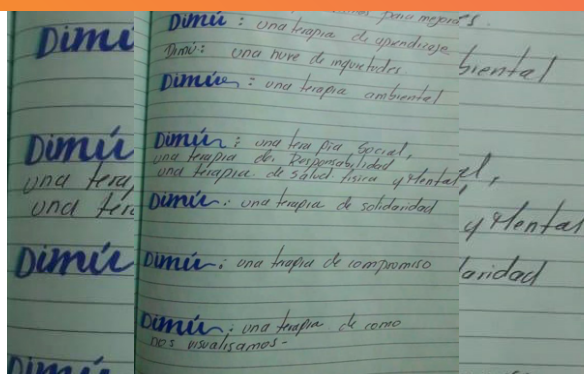 para mejorar.
Dimú : una terapia de aprendizaje
Dimú : una nuve de inquietudes
Dimú : una terapia ambiental
Dimú : una terapia Social,
una terapia de Responsabilidad
una terapia de salud fisica y Mental
Dimú : una terapia de solidaridad
Dimú : una trapia de compromiso
Dimú : una terapia de como
nos visualisamos-